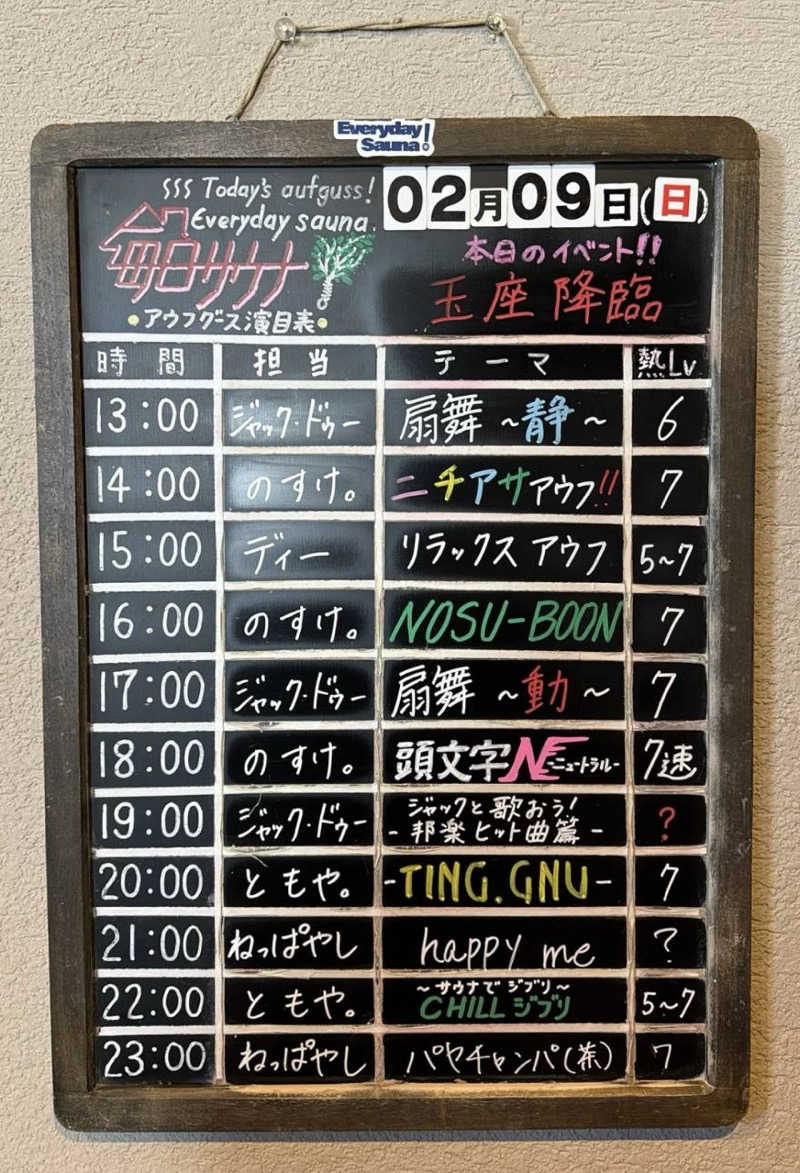 Everyday
Sauna!
Today's aufguss!
Everyday sauna.
毎日サウナ
アウフグース演目表
02月09日(日)
本日のイベント!!
玉座降臨
時間 担当 テーマ 熱Lv
13:00 ジャック・ドゥー 扇舞 ~静~ 6
14:00 のすけ。 ニチアサアウフ!! 7
15:00 ディー リラックス アウフ 5~7
16:00 のすけ。 NOSU-BOON 7
17:00 ジャック・ドゥー 扇舞 ~動~ 7
18:00 のすけ。 頭文字NE ニュートラル 7速
19:00 ジャック・ドゥー ジャックと歌おう! ?
-邦楽ヒット曲篇-
20:00 ともや。 -TING.GNU- 7
21:00 ねっぱやし happy me ?
22:00 ともや。 ~サウナでジブリ~ 5~7
CHILL ジブリ
23:00 ねっぱやし パヤチャンパ(茶) 7